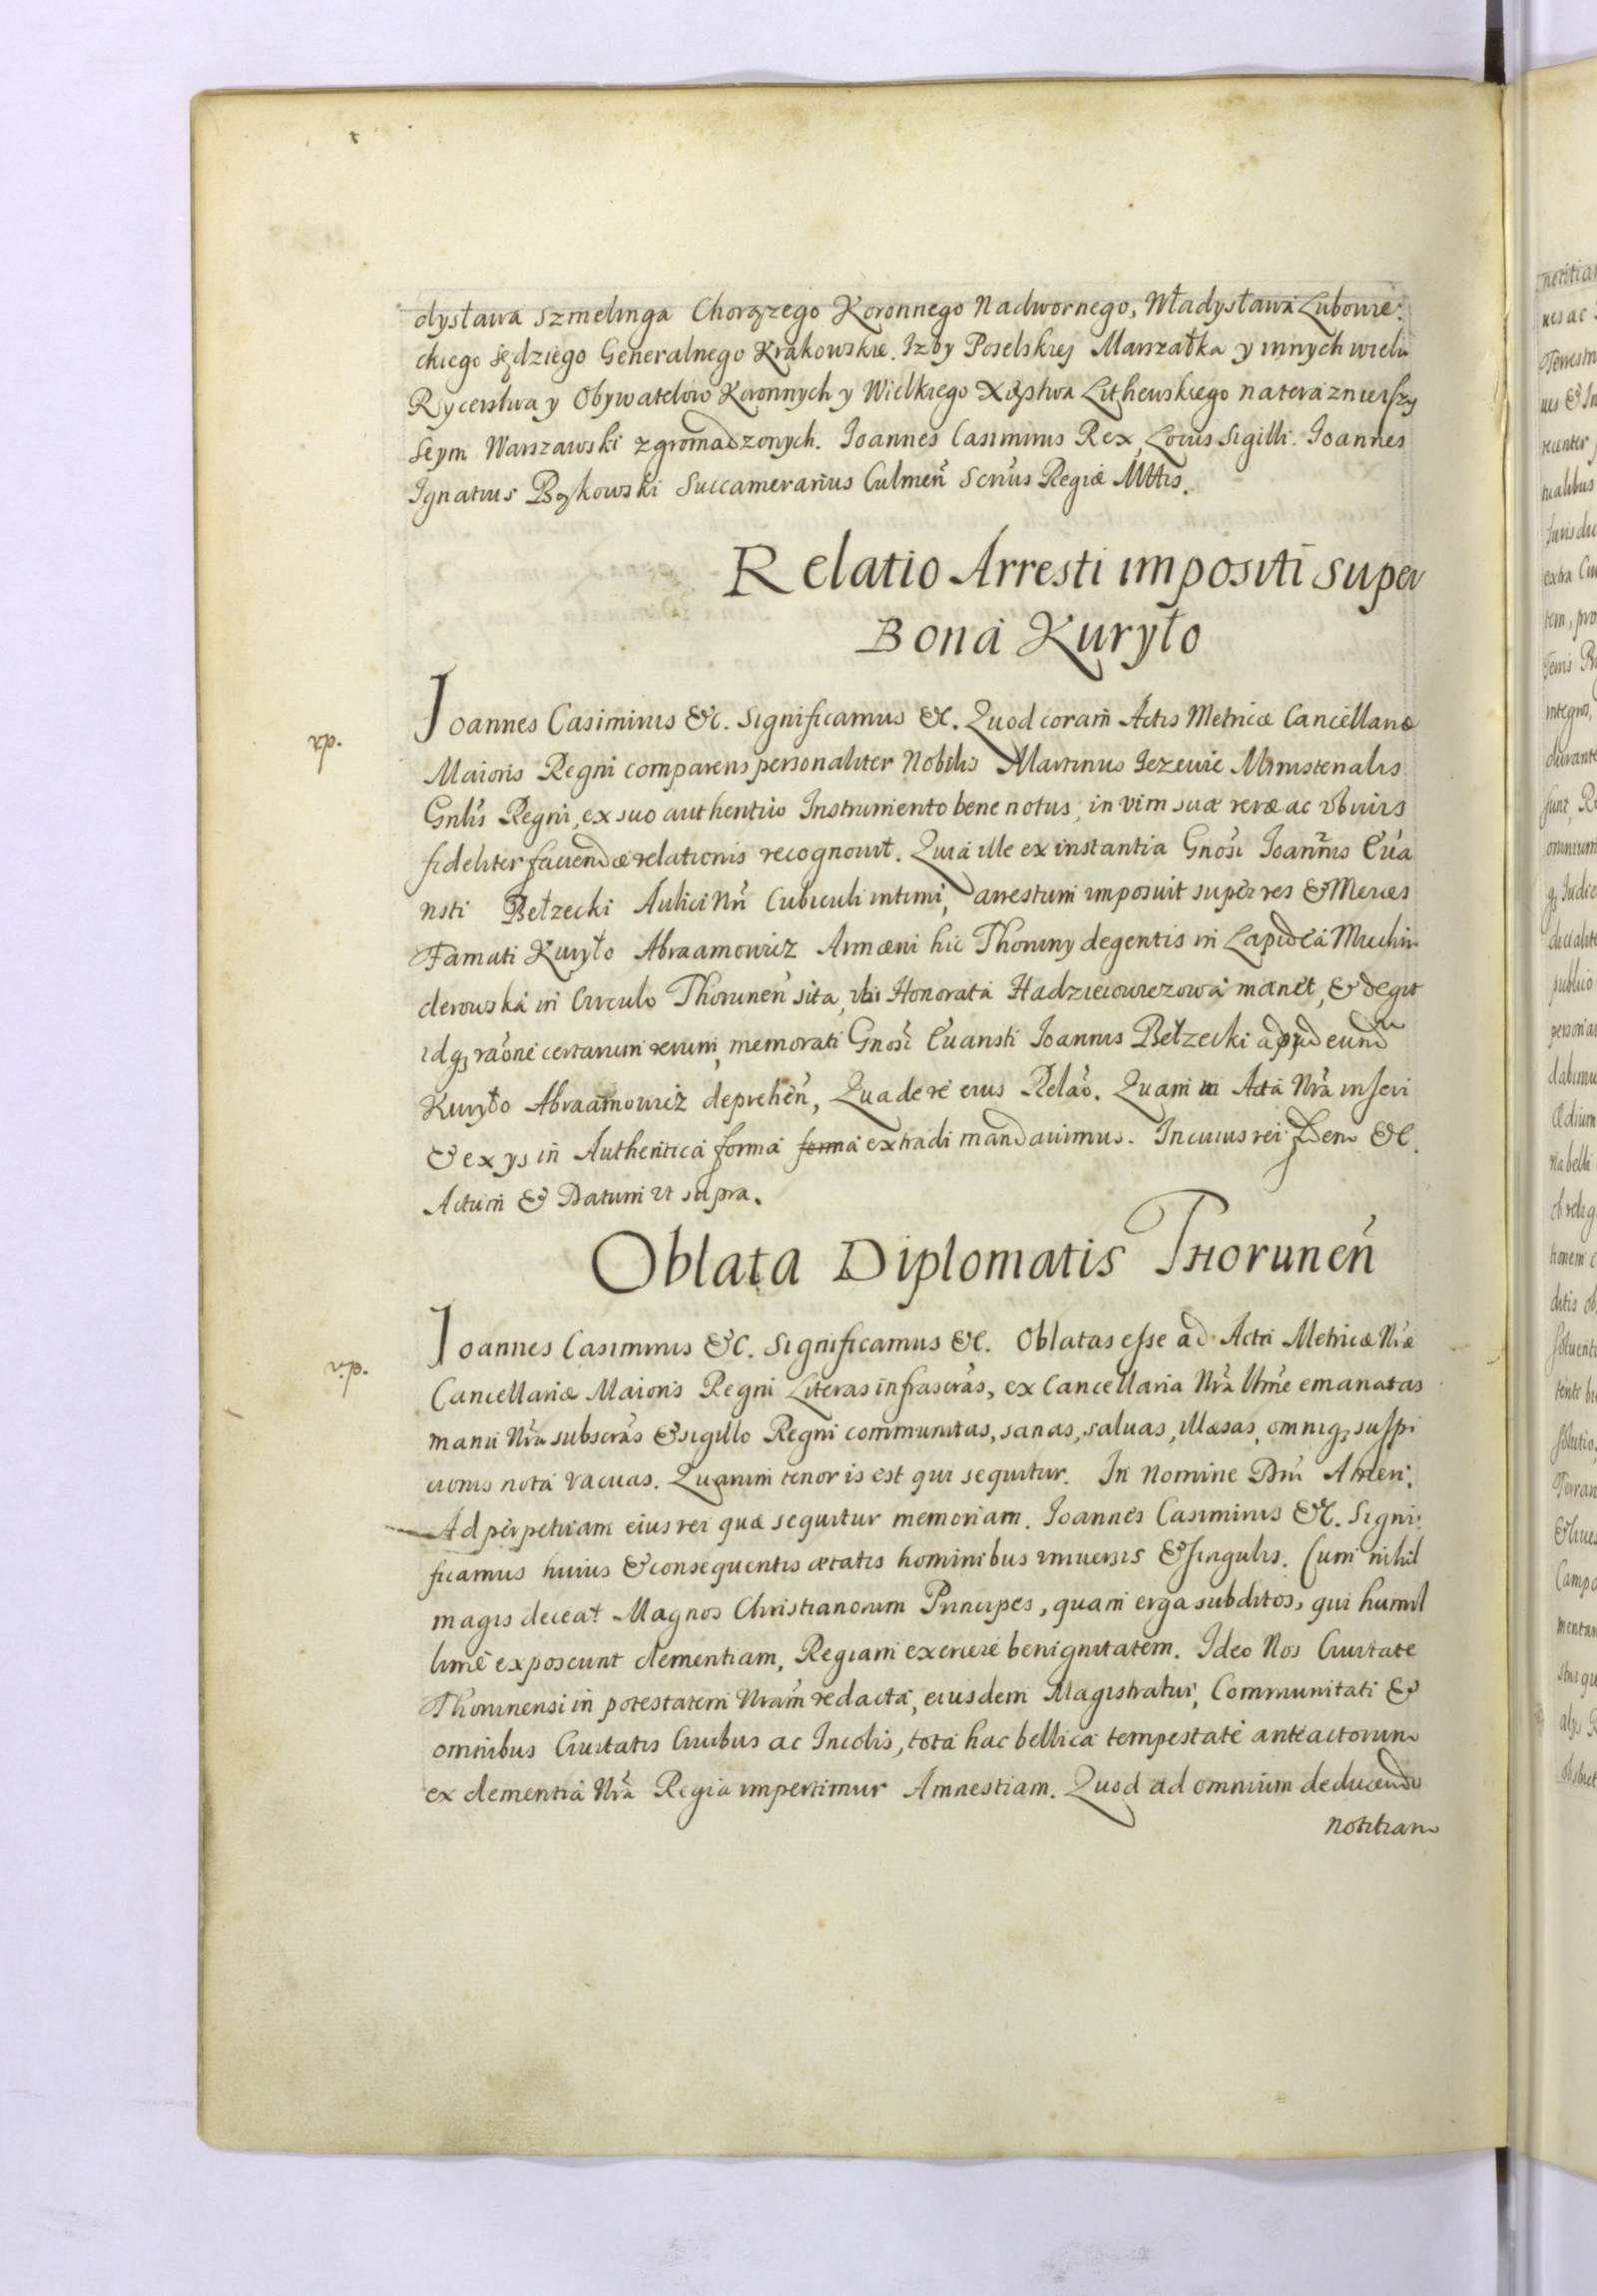 dysława Szmelinga Chorązego Koronnego Nadwornego, Władysława Lubowie-
ckiego Sędziego Generalnego Krakowskie. Izby Poselskiej Marszałka y innych wielu
Rycerstwa y Obywatelow Koronnych y Wielkiego Xięstwa Lithewskiego na teraznieiszy
Seym Warszawski zgromadzonych. Joannes Casimirus Rex, Locus Sigilli. Joannes
Ignatius Bąkowski Succamerarius Culmeñ Scrius Regiæ Mttis.
Relatio Arresti impositi super
Bona Kuryło
vp.
Joannes Casimirus &c. Significamus &c. Quod coram Actis Metricæ Cancellariæ
Maioris Regni comparens personaliter Nobilis Martinus Jezewic Ministerialis
Gnlis Regni, ex suo authentico Instrumento bene notus, in vim suæ veræ ac
fideliter faciendæ relationis recognouit. Quia ille ex instantia Gnosi Joannis Eua
risti Bełzecki Aulici Nri Cubiculi intimi, arrestum imposuit super res & Merces
Famati Kuryło Abraamowicz Armæni hic Thoruny degentis in Lapidea Muchin
derowska in Circulo Thoruneñ sita, vbi Honorata Hadzieiowiczowa manet, & degit
idq; raone certarum rerum, memorati Gnosi Euaristi Joannis Bełzecki apud eund
Kuryło Abraamowicz depreheñ, Qua de re eius Relao. Quam in Acta Nra inseri
& ex ys in Authentica forma forma extradi mandauimus. In cuius rei fidem &c.
Actum & Datum vt supra.
Oblata Diplomatis Thoruneñ
v.p.
Joannes Casimirus &c. Significamus &c. Oblatas esse ad Acta Metricæ Nræ
Cancellariæ Maioris Regni Literas infrascras, ex Cancellaria Nra Utme emanatas
manu Nra subscras & sigillo Regni communitas, sanas, saluas, illæsas, omniq; suspi
cionis nota vacuas. Quarum tenor is est qui sequitur. In Nomine Dni Amen.
Ad perpetuam eius rei quæ sequitur memoriam. Joannes Casimirus &c. Signi-
ficamus huius & consequentis ætatis hominibus vniuersis & singulis. Cum nihil
magis deceat Magnos Christianorum Principes, quam erga subditos, qui humil
lime exposcunt clementiam, Regiam exercere benignitatem. Ideo Nos Ciuitate
Thorunensi in potestatem Nram redacta, eiusdem Magistratui, Communitati &
omnibus Ciuitatis Ciuibus ac Incolis, tota hac bellica tempestate anteactorum
ex clementia Nra Regia impertimur Amnestiam. Quod ad omnium deducendo
notitiam